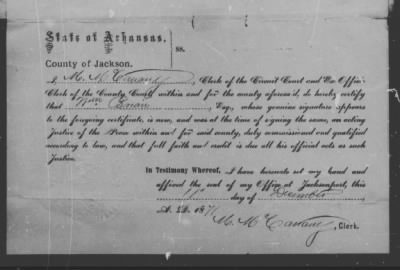 State of Arkansas,
ss.
County of Jackson.
I M. M. Clerk of the Circuit Court and Ex Officio
Clerk of the County Court within and for the county aforesaid, do hereby certify
that Wm Esq., whose genuine signature appears
to the foregoing certificate, is now, and was at time of signing the same, an acting
Justice of the Peace within and for said county, duly commissioned and qualified
according to law, and that full faith and credit is due all his official acts as such
Justice.
In Testimony Whereof, I have hereunto set my hand and
affixed the seal of my Office at Jacksonport, this
day of December
A. D. 187
M. M. Clerk.